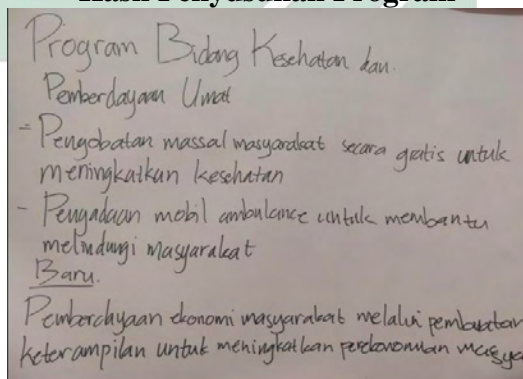 Hasil Penyusunan Program
Program Bidang Kesehatan dan.
Pemberdayaan Umat
- Pengobatan massal masyarakat secara gratis untuk
meningkatkan kesehatan
- Pengadaan mobil ambulance untuk membantu
melindungi masyarakat
Baru.
Pemberdayaan ekonomi masyarakat melalui pembuatan
keterampilan untuk meningkatkan perekonomian